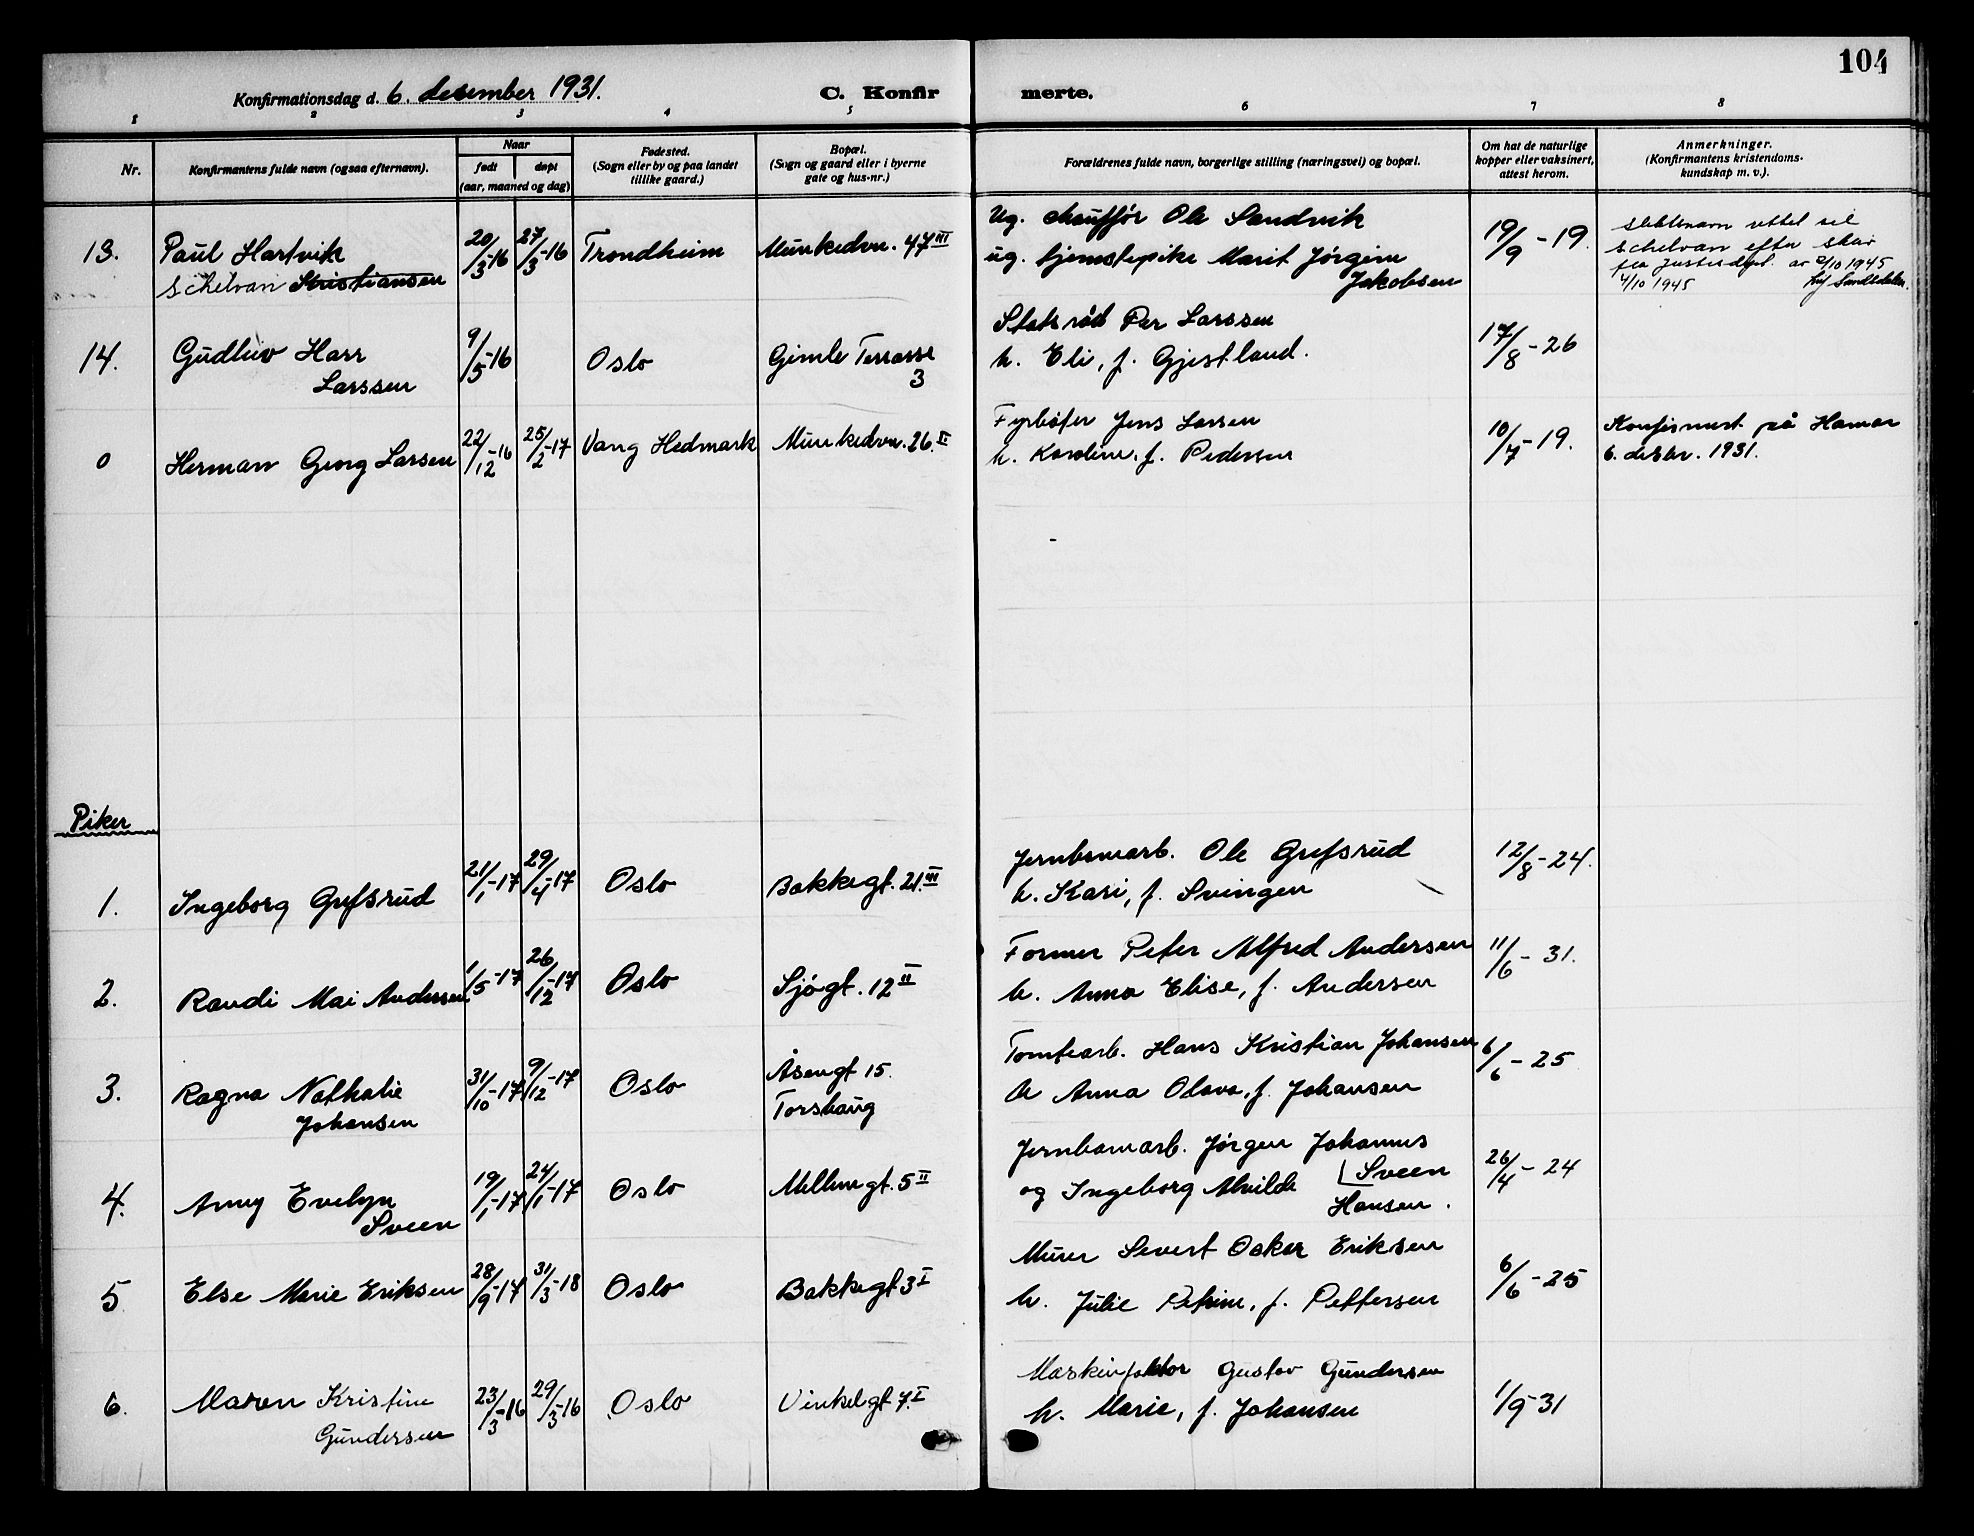 104
Konfirmationsdag d. 6. desember 1931.
C. Konfir merte.
1 2 3 4 5 6 7 8
Nr.
Konfirmantens fulde navn (ogsaa efternavn).
Naar
født døpt
(aar, maaned og dag)
Fødested.
(Sogn eller by og paa landet
tillike gaard.)
Bopæl.
(Sogn og gaard eller i byerne
gate og hus-nr.)
Forældrenes fulde navn, borgerlige stilling (næringsvei) og bopæl.
Om hat de naturlige
kopper eller vaksinert,
attest herom.
Anmerkninger.
(Konfirmantens kristendoms-
kundskap m. v.).
13.
Paul Hartvik
Schelvan Kristiansen
20/3-16
27/3-16
Trondheim
Munkedvn. 47 III
Ug. chauffør Ole Sandvik
ug. hjemstepike Marit Jørgine
Jakobsen
19/9-19.
slektsnavn rettet til
Schelvan efter skriv
fra Justisdept. av 2/10 1945
4/10 1945
14.
Gudluv Harr
Larssen
9/5-16
Oslo
Gimle Terrasse
3
Statsråd Per Larssen
h. Eli, f. Gjestland.
17/8-26
0
Herman Georg Larsen
22/12-16
25/2-17
Vang Hedmark
Munkedvn. 26. II
Fyrbøter Jens Larsen
h. Karoline, f. Pedersen
10/7-19.
Konfirmert på Hamar
6. desbr. 1931.
Piker
1.
Ingeborg Grefsrud
21/1-17
29/4-17
Oslo
Bakkegt. 21. III
Jernbanearb. Ole Grefsrud
h. Kari, f. Svingen
12/8-24.
2.
Randi Mai Andersen
1/5-17
26/12-17
Oslo
Sjøgt. 12 II
Former Peter Alfred Andersen
h. Anna Elise, f. Andersen
11/6-31.
3.
Ragna Nathalie
Johansen
31/10-17
9/12-17
Oslo
Åsengt 15
Torshaug
Tomtearb. Hans Kristian Johansen
h Anna Olava, f. Johansen
6/6-25
4.
Anny Evelyn
Sveen
19/1-17
24/1-17
Oslo
Møllergt. 5 II
Jernbanearb. Jørgen Johannes
Sveen
og Ingeborg Alvilde
Hansen.
26/4-24
5
Else Marie Eriksen
28/9-17
31/3-18
Oslo
Bakkegt 3 I
Murer Severt Oskar Eriksen
h. Julie Petrine, f. Pettersen
6/6-25
6.
Maren Kristine
Gundersen
23/3-16
29/3-16
Oslo
Vinkelgt 7. I
Maskinfaktor Gustav Gundersen
h. Marie, f. Johansen
1/9-31